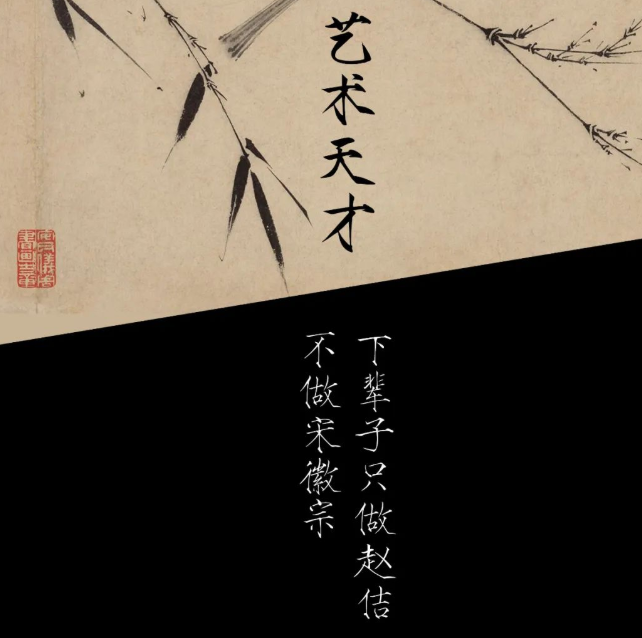 艺术天才
下辈子只做赵佶
不做宋徽宗